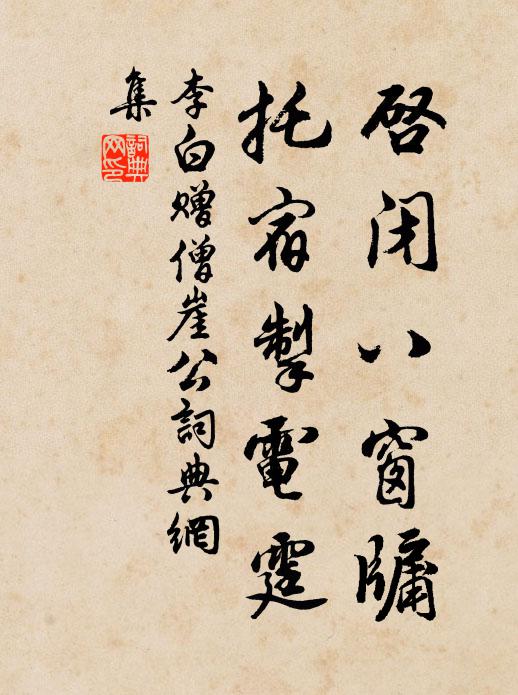 啓閉八窗牖
托宿掣電霆
李白贈僧崖公詞典網
集
詞典
网印